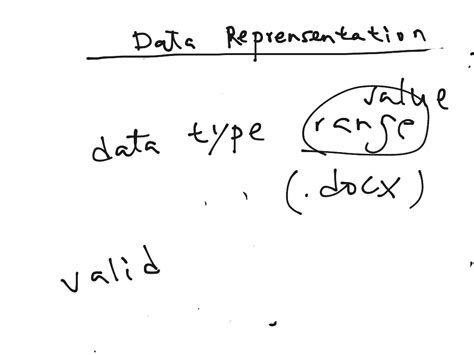 Data Reprensentation
value
data type range
(.docx)
valid